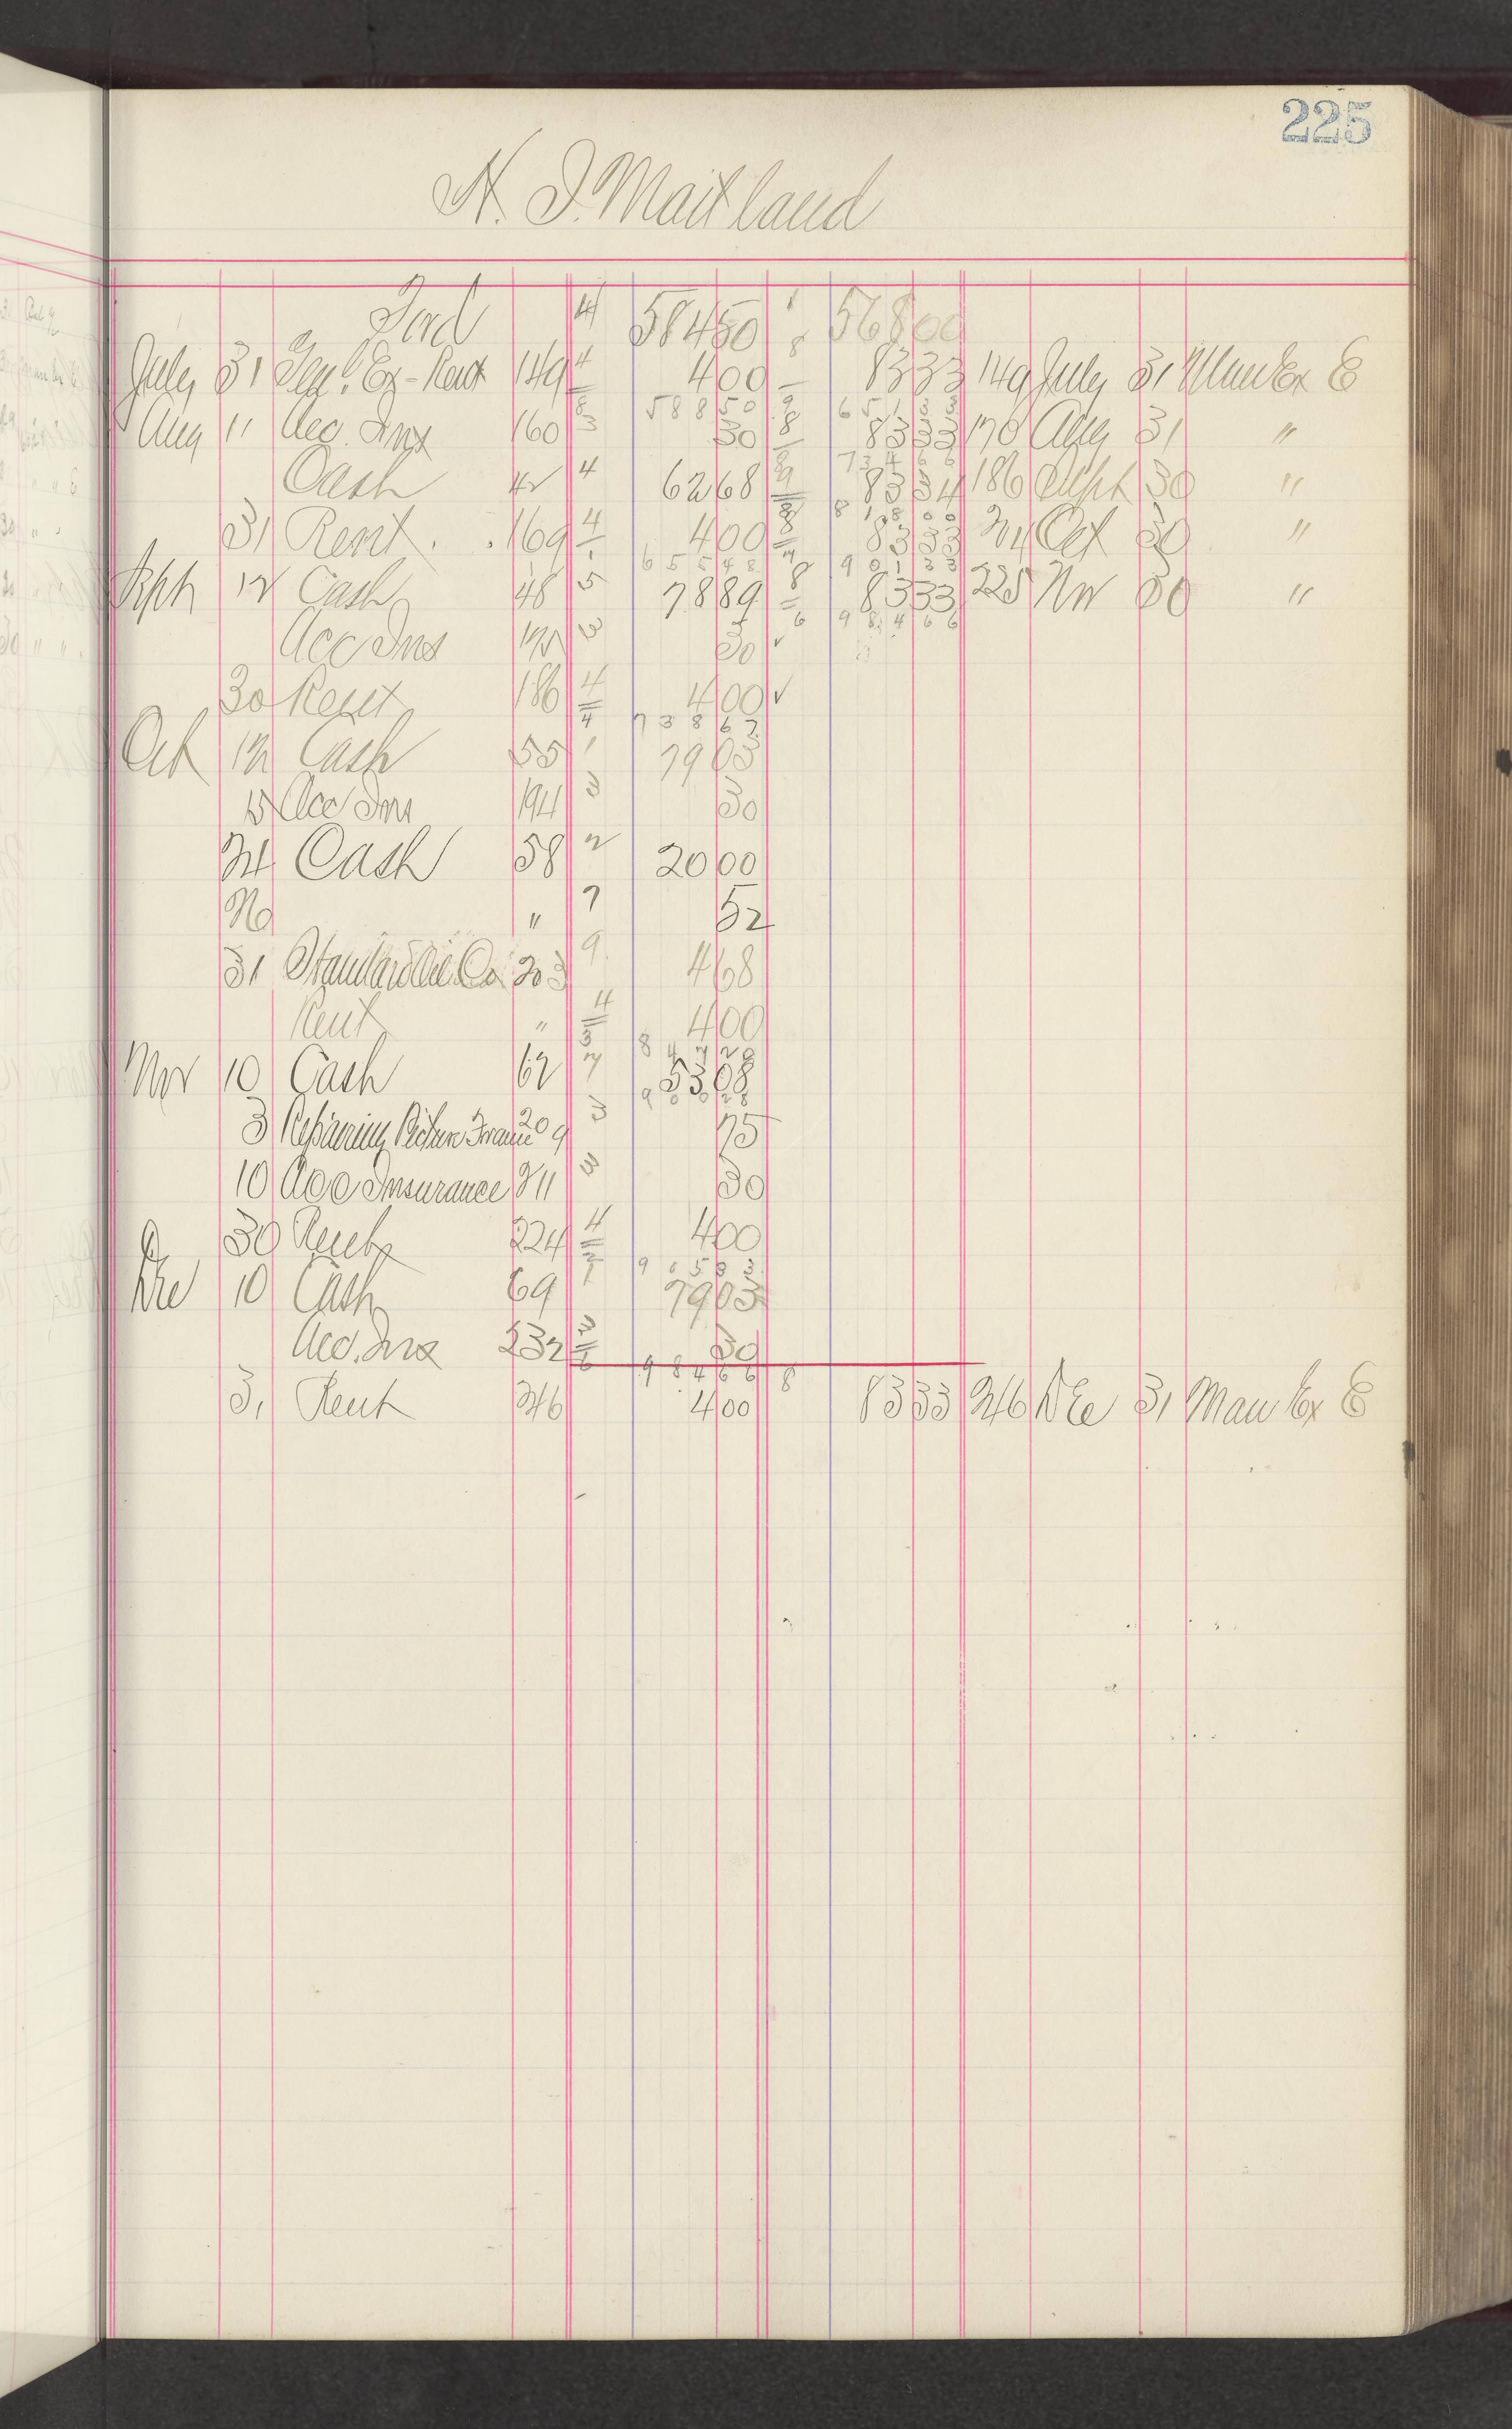 225
N. J. Maitland
Ford 4 584 50 1 8 568 00
July 31 Genl. Ex - Rent 149 4 4 00 83 33 149 July 31 Man Ex E
8 588 50 9 651 33
Aug 11 Acc. Ins 160 3 30 8 83 33 170 Aug 31 "
734 66
Cash 42 4 62 68 9 83 34 186 Sept 30 "
818 00
31 Rent. 169 4 4 00 8 83 33 Oct 30 "
655 48 901 33
Sept 12 Cash 48 5 78 89 8 83 33 225 Nov 30 "
6 984 66
Acc Ins 3 30 ✓
30 Rent 186 4 4 00 ✓
4 738 67
Oct 12 Cash 55 1 79 03
15 Acc Ins 194 3 30
24 Cash 58 2 20 00
26 " 7 52
31 Standard Oil Co 203 9 4 68
Rent " 4 4 00
5 847 20
Nov 10 Cash 62 7 53 08
900 28
3 Repairing Picture Frame 209 3 75
10 Acc Insurance 211 3 30
30 Rent 224 4 4 00
2 905 33
Dec 10 Cash 69 1 79 03
Acc. Ins 232 3 30
6 984 66 8
31 Rent 246 4 00 83 33 246 Dec 31 Man Ex E